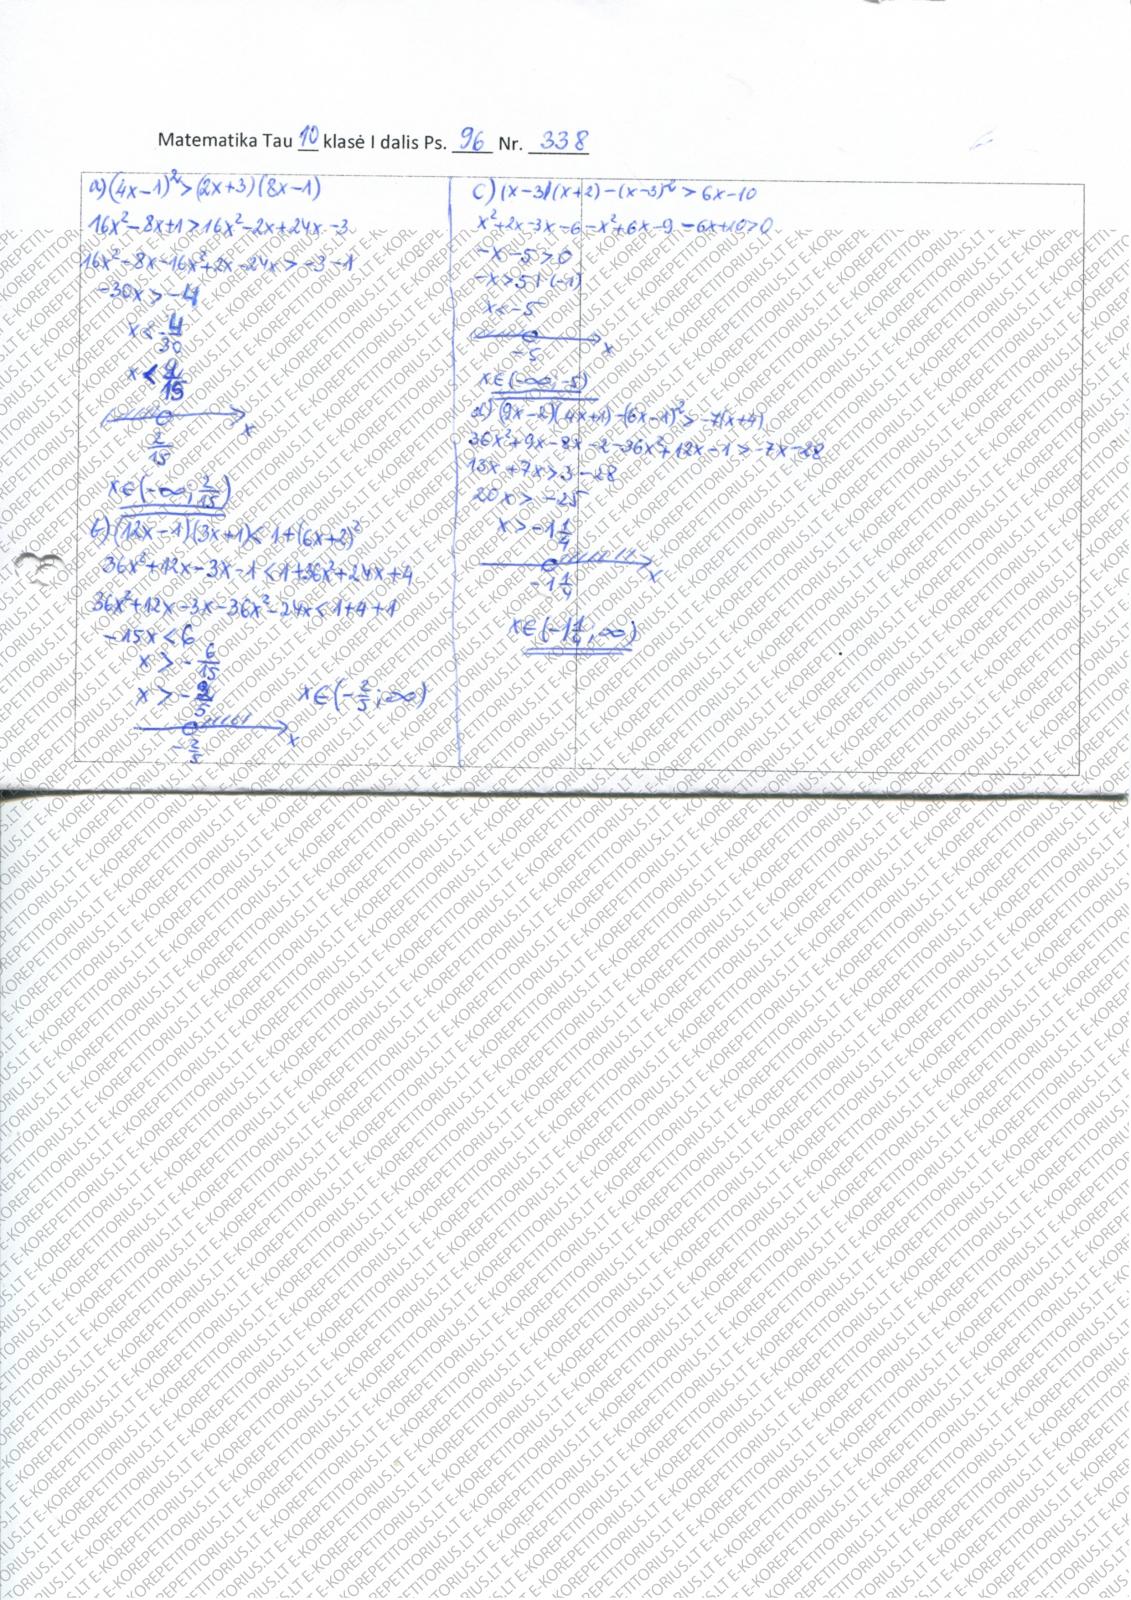 Matematika Tau 10 klasė I dalis Ps. 96 Nr. 338
a) (4x-1)²>(2x+3)(8x-1)
16x²-8x+1>16x²-2x+24x-3
16x²-8x-16x²+2x-24x>-3-1
-30x>-4
x<4/30
x<2/15
x
2/15
x∈(-∞; 2/15)
b) (12x-1)(3x+1)<1+(6x+2)²
36x²+12x-3x-1<1+36x²+24x+4
36x²+12x-3x-36x²-24x<1+4+1
-15x<6
x>-6/15
x>-2/5
x∈(-2/5; ∞)
x
-2/5
c) (x-3)(x+2)-(x-3)²>6x-10
x²+2x-3x-6-x²+6x-9-6x+10>0
-x-5>0
-x>5 |·(-1)
x<-5
x
-5
x∈(-∞; -5)
d) (9x-2)(4x+1)-(6x-1)²>-7(x+4)
36x²+9x-8x-2-36x²+12x-1>-7x-28
13x+7x>3-28
20x>-25
x>-1 1/4
x
-1 1/4
x∈(-1 1/4; ∞)
E-KOREPETITORIUS.LT